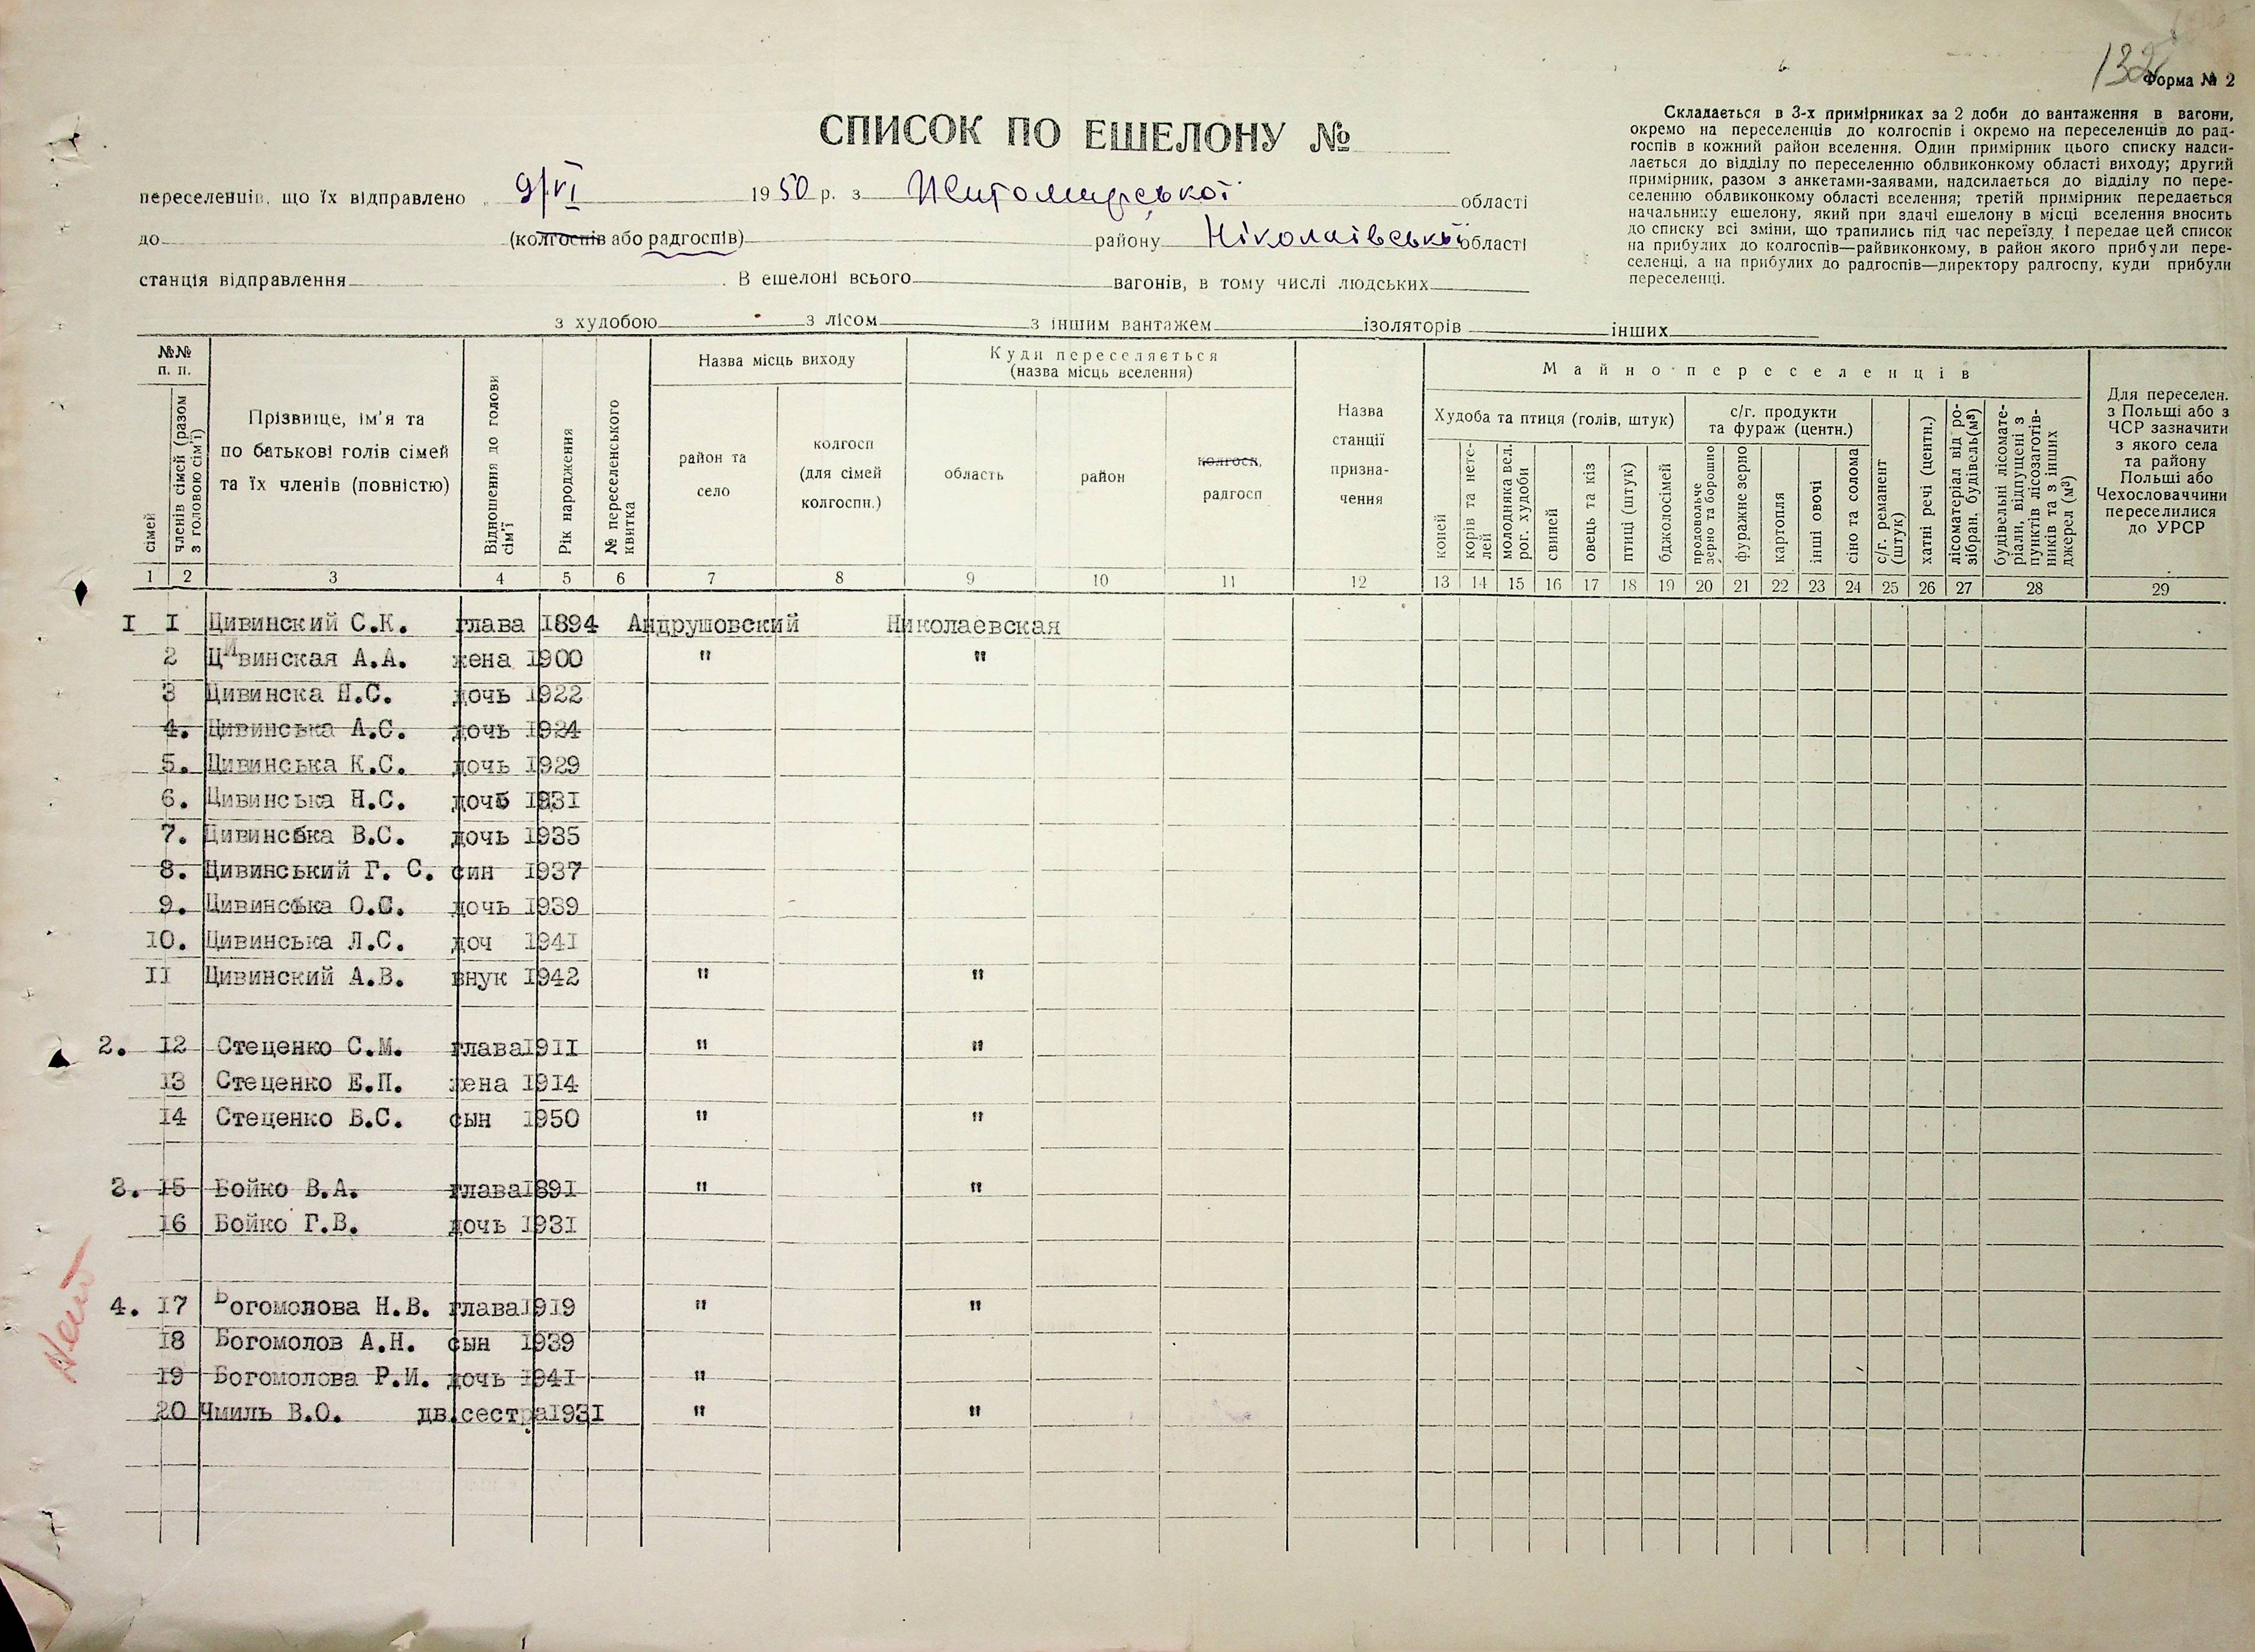 132
Форма № 2
СПИСОК ПО ЕШЕЛОНУ №
Складається в 3-х примірниках за 2 доби до вантаження в вагони,
окремо на переселенців до колгоспів і окремо на переселенців до рад-
госпів в кожний район вселення. Один примірник цього списку надси-
лається до відділу по переселенню облвиконкому області виходу; другий
примірник, разом з анкетами-заявами, надсилається до відділу по пере-
селенню облвиконкому області вселення; третій примірник передається
начальнику ешелону, який при здачі ешелону в місці вселення вносить
до списку всі зміни, що трапились під час переїзду, і передає цей список
на прибулих до колгоспів—райвиконкому, в район якого прибули пере-
селенці, а на прибулих до радгоспів—директору радгоспу, куди прибули
переселенці.
переселенців, що їх відправлено 9/VI 1950 р. з Житомирської області
до (колгоспів або радгоспів) району Ніколаївської області
станція відправлення В ешелоні всього вагонів, в тому числі людських
з худобою з лісом з іншим вантажем ізоляторів інших
№№ п. п.
сімей
членів сімей (разом з головою сім'ї)
Прізвище, ім'я та
по батькові голів сімей
та їх членів (повністю)
Відношення до голови сім'ї
Рік народження
№ переселенського квитка
Назва місць виходу
район та
село
колгосп
(для сімей
колгоспн.)
Куди переселяється
(назва місць вселення)
область
район
колгосп,
радгосп
Назва
станції
призна-
чення
Майно переселенців
Худоба та птиця (голів, штук)
коней
корів та нете-
лей
молодняка вел.
рог. худоби
свиней
овець та кіз
птиці (штук)
бджолосімей
с/г. продукти
та фураж (центн.)
продовольче
зерно та борошно
фуражне зерно
картопля
інші овочі
сіно та солома
с/г. реманент
(штук)
хатні речі (центн.)
лісоматеріал від ро-
зібран. будівель(м³)
будівельні лісомате-
ріали, відпущені з
пунктів лісозаготів-
ників та з інших
джерел (м³)
Для переселен.
з Польщі або з
ЧСР зазначити
з якого села
та району
Польщі або
Чехословаччини
переселилися
до УРСР
1 2 3 4 5 6 7 8 9 10 11 12 13 14 15 16 17 18 19 20 21 22 23 24 25 26 27 28 29
I I Цивинский С.К. глава 1894 Андрушовский Николаевская
2 Цивинская А.А. жена 1900 " "
3 Цивинска Н.С. дочь 1922
4. Цивинська А.С. дочь 1924
5. Цивинська К.С. дочь 1929
6. Цивинська Н.С. дочб 1931
7. Цивинська В.С. дочь 1935
8. Цивинський Г. С. син 1937
9. Цивинська О.С. дочь 1939
10. Цивинська Л.С. доч 1941
II Цивинский А.В. внук 1942 " "
2. 12 Стеценко С.М. глава1911 " "
13 Стеценко Е.П. жена 1914
14 Стеценко В.С. сын 1950 " "
3. 15 Бойко В.А. глава1891 " "
16 Бойко Г.В. дочь 1931
4. 17 Богомолова Н.В. глава1919 " "
18 Богомолов А.Н. сын 1939
19 Богомолова Р.И. дочь 1941 "
20 Чмиль В.О. дв.сестра1931 " "